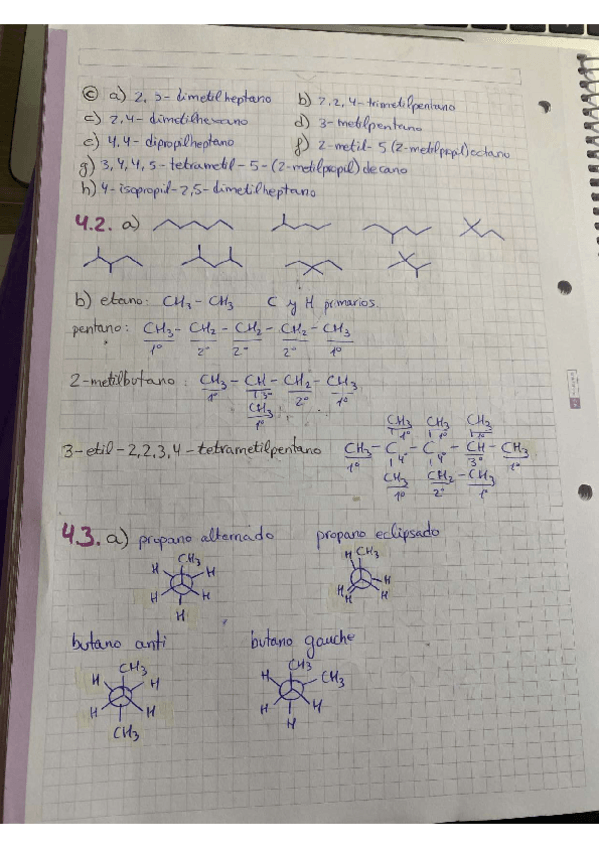 c) a) 2,5-dimetilheptano b) 2,2,4-trimetilpentano
c) 2,4-dimetilhexano d) 3-metilpentano
e) 4,4-dipropilheptano f) 2-metil-5(2-metilpropil)octano
g) 3,4,4,5-tetrametil-5-(2-metilpropil)decano
h) 4-isopropil-2,5-dimetilheptano
4.2. a)
b) etano: CH3-CH3 C y H primarios.
pentano: CH3-CH2-CH2-CH2-CH3
1º 2º 2º 2º 1º
2-metilbutano: CH3-CH-CH2-CH3
1º 3º 2º 1º
CH3
1º
CH3 CH3 CH3
1º 1º 1º
3-etil-2,2,3,4-tetrametilpentano CH3-C-C-CH-CH3
1º 4º 4º 3º 1º
CH3 CH2-CH3
1º 2º 1º
4.3. a) propano alternado propano eclipsado
CH3 H CH3
H H H
H H H H H
H
butano anti butano gauche
CH3 CH3
H H H CH3
H H H H
CH3 H